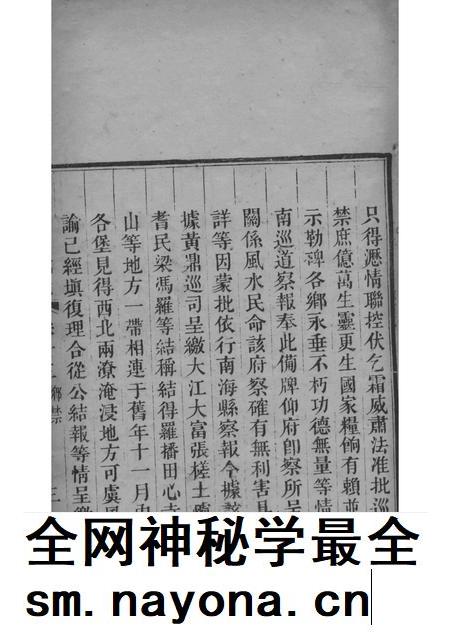 只得瀝情聯控伏乞霜威肅法准批巡
禁庶億萬生靈更生國家糧餉有賴並
示勒碑各鄉永垂不朽功德無量等情
南巡道察報奉此備牌仰府卽察所呈
關係風水民命該府察確有無利害具
詳等因蒙批依行南海縣察報今據該
據黃鼎巡司呈繳大江大富張槎土
耆民梁馮羅等結稱結得羅播田心
山等地方一帶相連于舊年十一月
各堡見得西北兩潦淹浸地方可虞
諭已經塡復理合從公結報等情呈
鄉禁
三
全网神秘学最全
sm.nayona.cn